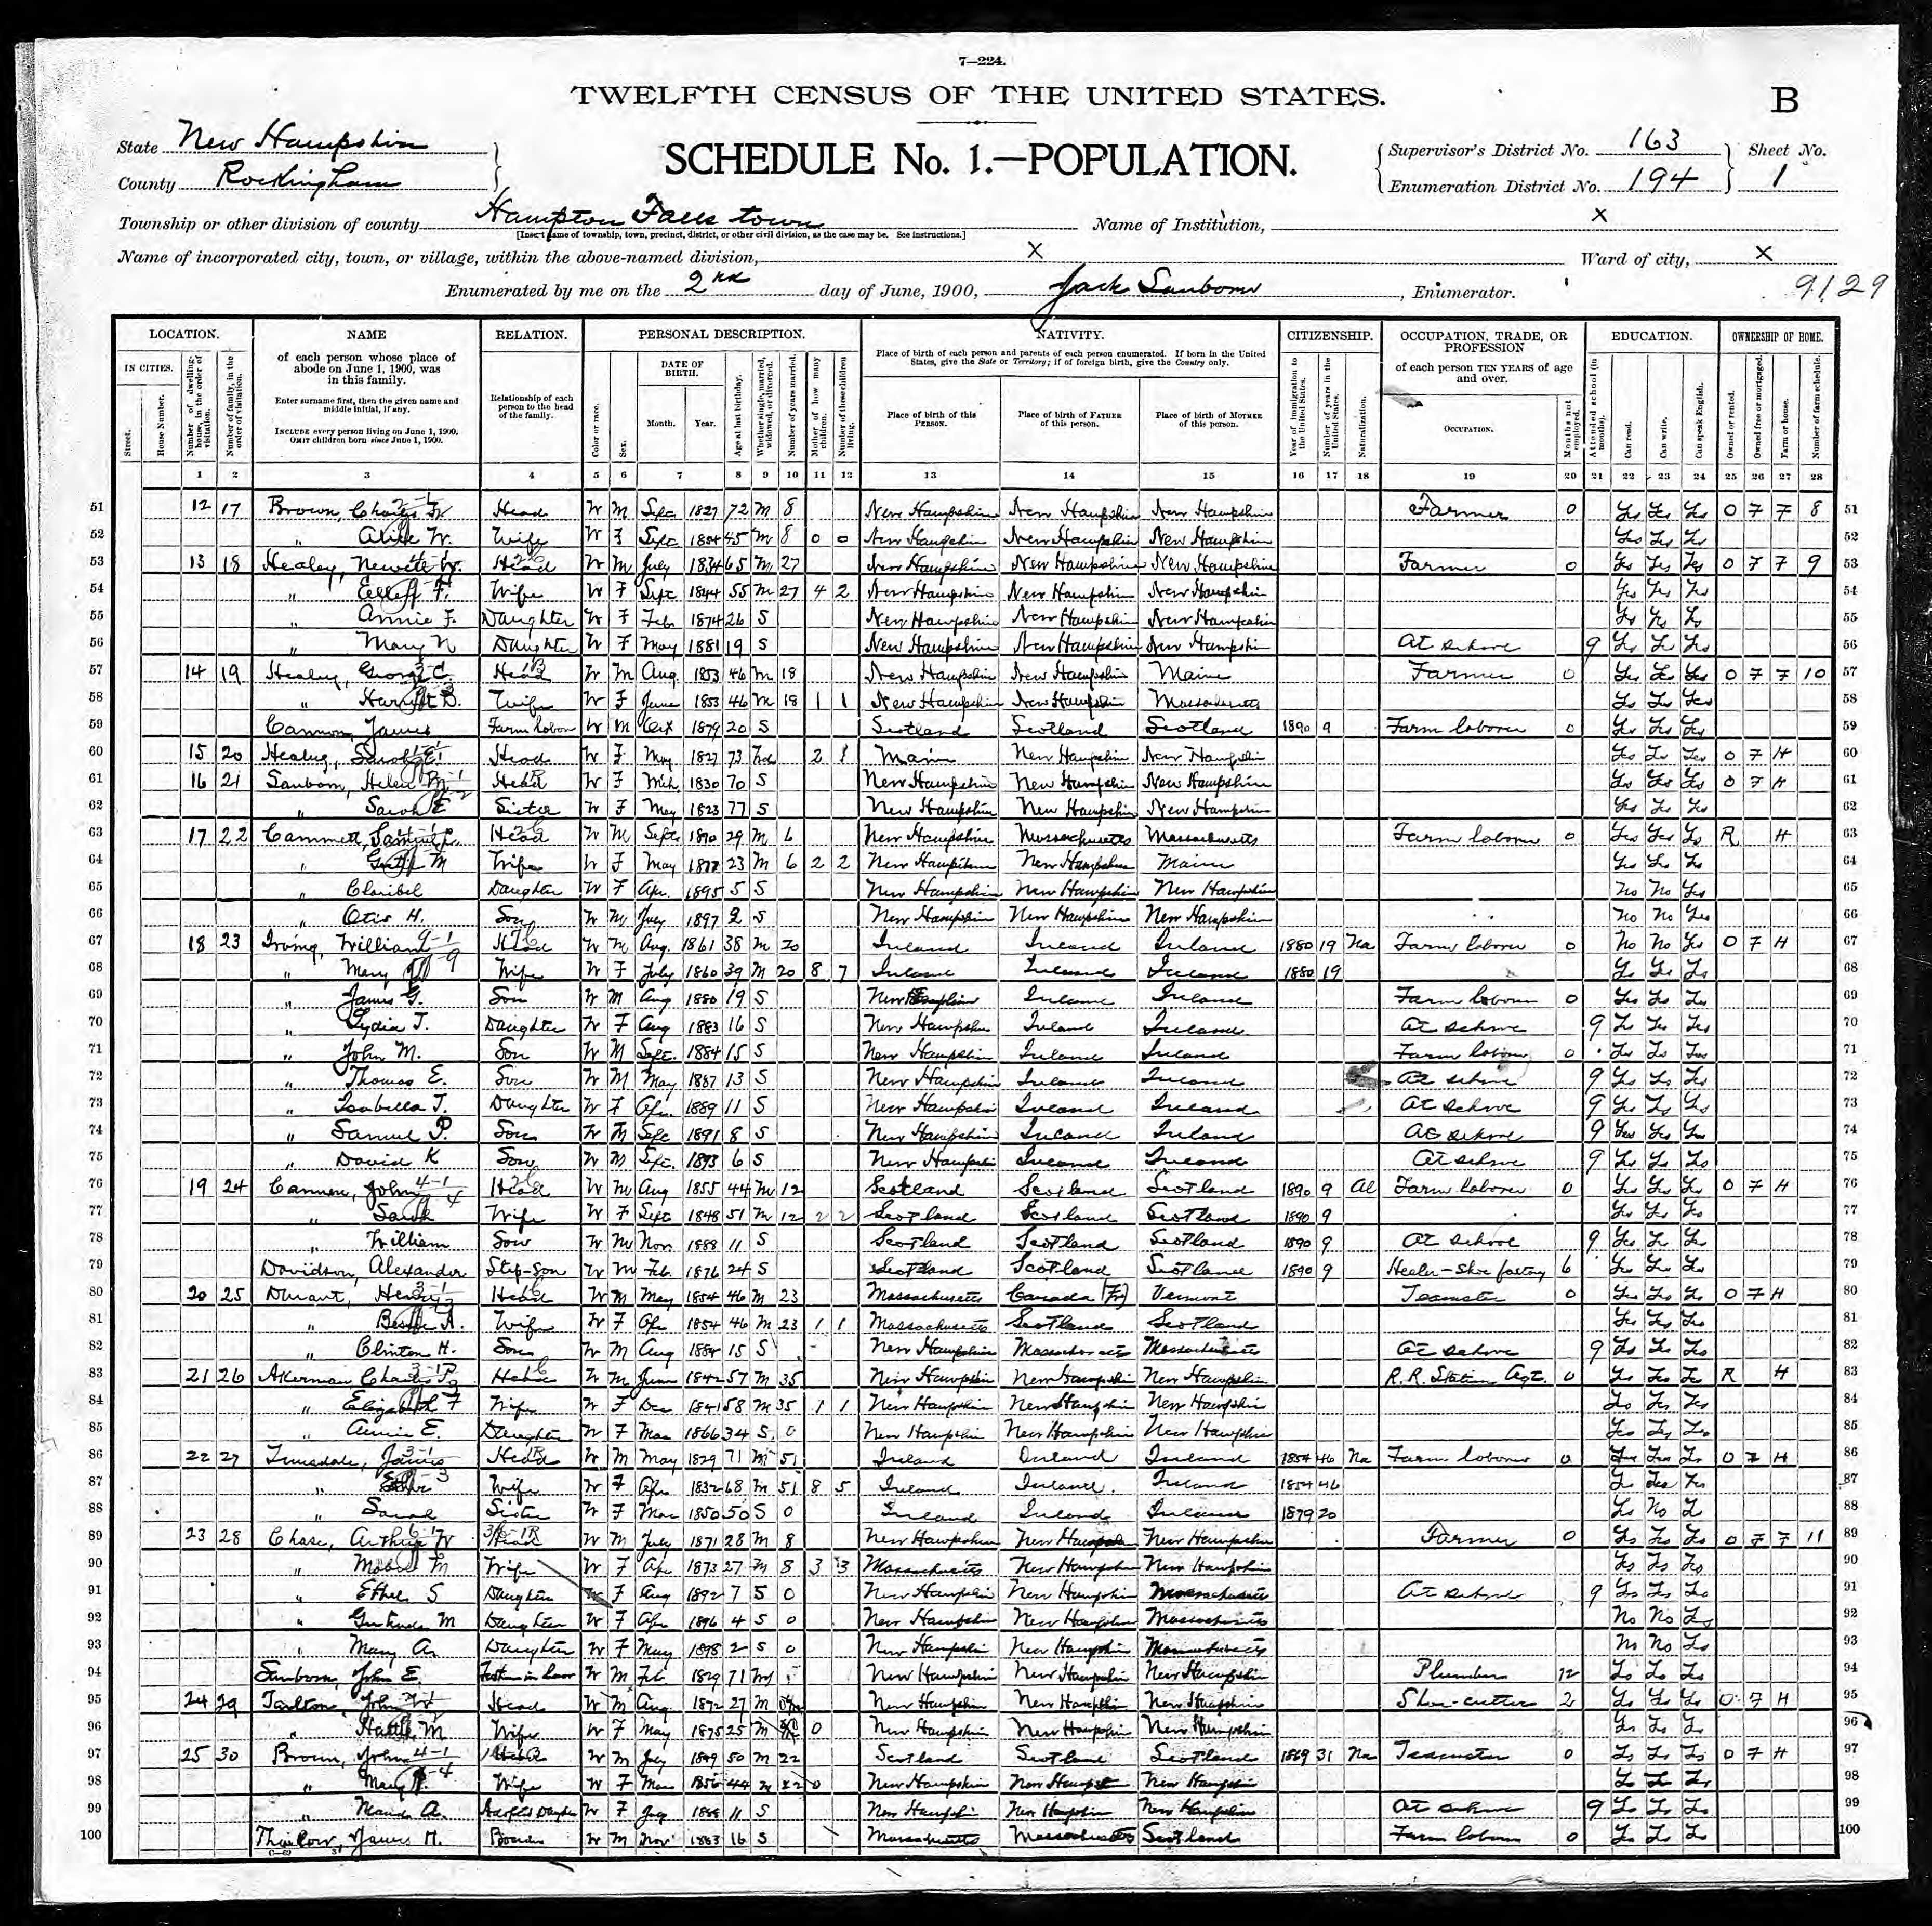 7—224.
TWELFTH CENSUS OF THE UNITED STATES.
B
State New Hampshire
SCHEDULE No. 1.—POPULATION.
Supervisor's District No. 163
Sheet No.
County Rockingham
Enumeration District No. 194
1
Township or other division of county Hampton Falls town
Name of Institution, X
[Insert name of township, town, precinct, district, or other civil division, as the case may be. See instructions.]
Name of incorporated city, town, or village, within the above-named division, X
Ward of city, X
Enumerated by me on the 2nd day of June, 1900, Jack Sanborn, Enumerator.
9129
LOCATION. NAME RELATION. PERSONAL DESCRIPTION. NATIVITY. CITIZENSHIP. OCCUPATION, TRADE, OR PROFESSION EDUCATION. OWNERSHIP OF HOME.
IN CITIES.
Street.
House Number.
Number of dwelling-house, in the order of visitation.
Number of family, in the order of visitation.
of each person whose place of abode on June 1, 1900, was in this family.
Enter surname first, then the given name and middle initial, if any.
INCLUDE every person living on June 1, 1900.
OMIT children born since June 1, 1900.
Relationship of each person to the head of the family.
Color or race.
Sex.
DATE OF BIRTH.
Month. Year.
Age at last birthday.
Whether single, married, widowed, or divorced.
Number of years married.
Mother of how many children.
Number of these children living.
Place of birth of each person and parents of each person enumerated. If born in the United States, give the State or Territory; if of foreign birth, give the Country only.
Place of birth of this PERSON.
Place of birth of FATHER of this person.
Place of birth of MOTHER of this person.
Year of immigration to the United States.
Number of years in the United States.
Naturalization.
of each person TEN YEARS of age and over.
OCCUPATION.
Months not employed.
Attended school (in months).
Can read.
Can write.
Can speak English.
Owned or rented.
Owned free or mortgaged.
Farm or house.
Number of farm schedule.
1 2 3 4 5 6 7 8 9 10 11 12 13 14 15 16 17 18 19 20 21 22 23 24 25 26 27 28
51 12 17 Brown, Head W M 1827 72 M 8 New Hampshire New Hampshire New Hampshire Farmer 0 Yes Yes Yes O F F 8 51
52 " W. Wife W F Sept 1854 45 M 8 0 0 New Hampshire New Hampshire New Hampshire Yes Yes Yes 52
53 13 18 Healey, Head W M July 1834 65 M 27 New Hampshire New Hampshire New Hampshire Farmer 0 Yes Yes Yes O F F 9 53
54 " F. Wife W F Sept 1844 55 M 27 4 2 New Hampshire New Hampshire New Hampshire Yes Yes Yes 54
55 " Annie F. Daughter W F Feb 1874 26 S New Hampshire New Hampshire New Hampshire Yes Yes Yes 55
56 " Mary N Daughter W F May 1881 19 S New Hampshire New Hampshire New Hampshire At school 9 Yes Yes Yes 56
57 14 19 Healey, George C. Head W M Aug. 1853 46 M 18 New Hampshire New Hampshire Maine Farmer 0 Yes Yes Yes O F F 10 57
58 " B. Wife W F June 1853 46 M 18 1 1 New Hampshire New Hampshire Massachusetts Yes Yes Yes 58
59 Cannon, James Farm labor W M Oct 1879 20 S Scotland Scotland Scotland 1890 9 Farm laborer 0 Yes Yes Yes 59
60 15 20 Healey, Sarah Head W F May 1827 73 Wd 2 1 Maine New Hampshire New Hampshire Yes Yes Yes O F H 60
61 16 21 Sanborn, Helen M Head W F Mch 1830 70 S New Hampshire New Hampshire New Hampshire Yes Yes Yes O F H 61
62 " Sarah E Sister W F May 1823 77 S New Hampshire New Hampshire New Hampshire Yes Yes Yes 62
63 17 22 Cammett, Head W M Sept 29 M 6 New Hampshire Massachusetts Massachusetts Farm laborer 0 Yes Yes Yes R H 63
64 " M Wife W F May 23 M 6 2 2 New Hampshire New Hampshire Maine Yes Yes Yes 64
65 " Claribel Daughter W F Apr. 1895 5 S New Hampshire New Hampshire New Hampshire No No Yes 65
66 " Otis H. Son W M July 1897 2 S New Hampshire New Hampshire New Hampshire No No Yes 66
67 18 23 Irving, William Head W M Aug. 1861 38 M 20 Ireland Ireland Ireland 1880 19 Na Farm laborer 0 No No Yes O F H 67
68 " Mary Wife W F July 1860 39 M 20 8 7 Ireland Ireland Ireland 1880 19 Yes Yes Yes 68
69 " James G. Son W M Aug 1880 19 S New Hampshire Ireland Ireland Farm laborer 0 Yes Yes Yes 69
70 " Lydia J. Daughter W F Aug 1883 16 S New Hampshire Ireland Ireland At school 9 Yes Yes Yes 70
71 " John M. Son W M Sept. 1884 15 S New Hampshire Ireland Ireland Farm laborer 0 Yes Yes Yes 71
72 " Thomas E. Son W M May 1887 13 S New Hampshire Ireland Ireland At school 9 Yes Yes Yes 72
73 " Isabella J. Daughter W F Apr. 1889 11 S New Hampshire Ireland Ireland At school 9 Yes Yes Yes 73
74 " Samuel P. Son W M Sept 1891 8 S New Hampshire Ireland Ireland At school 9 Yes Yes Yes 74
75 " David K Son W M Sept. 1893 6 S New Hampshire Ireland Ireland At school 9 Yes Yes Yes 75
76 19 24 Cannon, John Head W M Aug 1855 44 M 12 Scotland Scotland Scotland 1890 9 Al Farm laborer 0 Yes Yes Yes O F H 76
77 " Sarah Wife W F Sept 1848 51 M 12 2 2 Scotland Scotland Scotland 1890 9 Yes Yes Yes 77
78 " William Son W M Nov. 1888 11 S Scotland Scotland Scotland 1890 9 At school 9 Yes Yes Yes 78
79 Davidson, Alexander Step-Son W M Feb. 1876 24 S Scotland Scotland Scotland 1890 9 Heeler-Shoe factory 6 Yes Yes Yes 79
80 20 25 Durant, Henry Head W M May 1854 46 M 23 Massachusetts Canada (Fr) Vermont Teamster 0 Yes Yes Yes O F H 80
81 " A. Wife W F Apr 1854 46 M 23 1 1 Massachusetts Scotland Scotland Yes Yes Yes 81
82 " Clinton H. Son W M Aug 1884 15 S New Hampshire Massachusetts Massachusetts At school 9 Yes Yes Yes 82
83 21 26 Akerman Charles Head W M June 1842 57 M 35 New Hampshire New Hampshire New Hampshire R.R. Station Agt. 0 Yes Yes Yes R H 83
84 " Elizabeth F Wife W F Dec 1841 58 M 35 1 1 New Hampshire New Hampshire New Hampshire Yes Yes Yes 84
85 " Annie E. Daughter W F Mar 1866 34 S 0 New Hampshire New Hampshire New Hampshire Yes Yes Yes 85
86 22 27 Truesdale, James Head W M May 1829 71 M 51 Ireland Ireland Ireland 1854 46 Na Farm laborer 0 Yes Yes Yes O F H 86
87 " Wife W F Apr 1832 68 M 51 8 5 Ireland Ireland Ireland 1854 46 Yes Yes Yes 87
88 " Sarah Sister W F Mar 1850 50 S 0 Ireland Ireland Ireland 1879 20 Yes No Yes 88
89 23 28 Chase, Arthur W Head W M July 1871 28 M 8 New Hampshire New Hampshire New Hampshire Farmer 0 Yes Yes Yes O F F 11 89
90 " Mabel M Wife W F Apr 1873 27 M 8 3 3 Massachusetts New Hampshire New Hampshire Yes Yes Yes 90
91 " Ethel S Daughter W F Aug 1892 7 S 0 New Hampshire New Hampshire Massachusetts At school 9 Yes Yes Yes 91
92 " Gertrude M Daughter W F Apr 1896 4 S 0 New Hampshire New Hampshire Massachusetts No No Yes 92
93 " Mary A. Daughter W F May 1898 2 S 0 New Hampshire New Hampshire Massachusetts No No Yes 93
94 Sanborn, John E. Father in law W M Feb 1829 71 New Hampshire New Hampshire New Hampshire Plumber 12 Yes Yes Yes 94
95 24 29 Tarlton, John Head W M Aug 1872 27 M New Hampshire New Hampshire New Hampshire Shoe-cutter 2 Yes Yes Yes O F H 95
96 " Hattie M Wife W F May 1875 25 M 0 New Hampshire New Hampshire New Hampshire Yes Yes Yes 96
97 25 30 Brown, John Head W M 50 M 22 Scotland Scotland Scotland 1869 31 Na Teamster 0 Yes Yes Yes O F H 97
98 " Mary Wife W F Mar 1856 44 M 22 0 New Hampshire New Hampshire New Hampshire Yes Yes Yes 98
99 " Maud A. Adopted Daughter W F 11 S New Hampshire New Hampshire New Hampshire At school 9 Yes Yes Yes 99
100 Thurlow, James H. Boarder W M Nov 1883 16 S Massachusetts Massachusetts Scotland Farm laborer 0 Yes Yes Yes 100